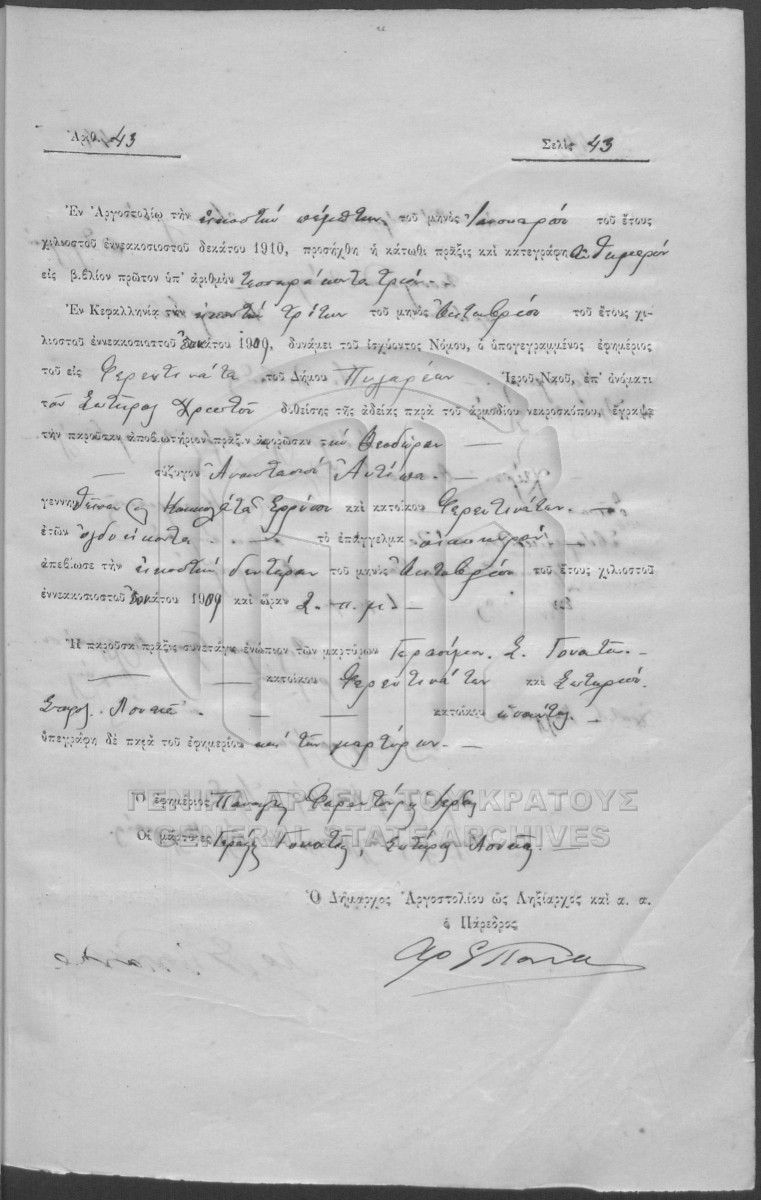 Ἀριθ. 43
Σελὶς 43
Ἐν Ἀργοστολίῳ τὴν εἰκοστὴν πέμπτην τοῦ μηνὸς Ἰανουαρίου τοῦ ἔτους
χιλιοστοῦ ἐννεακοσιοστοῦ δεκάτου 1910, προσήχθη ἡ κάτωθι πρᾶξις καὶ κατεγράφη αὐθημερὸν
εἰς βιβλίον πρῶτον ὑπ' ἀριθμὸν τεσσαράκοντα τρία.
Ἐν Κεφαλληνίᾳ τὴν εἰκοστὴν τρίτην τοῦ μηνὸς Ὀκτωβρίου τοῦ ἔτους χι-
λιοστοῦ ἐννεακοσιοστοῦ 1909, δυνάμει τοῦ ἰσχύοντος Νόμου, ὁ ὑπογεγραμμένος ἐφημέριος
τοῦ εἰς Φερεντινάτα τοῦ Δήμου Πυλαρέων Ἱεροῦ Ναοῦ, ἐπ' ὀνόματι
τοῦ Σωτῆρος Χριστοῦ δοθείσης τῆς ἀδείας παρὰ τοῦ ἁρμοδίου νεκροσκόπου, ἔγραψε
τὴν παροῦσαν ἀποβιωτήριον πρᾶξιν ἀφορῶσαν τὴν Θεοδώραν
σύζυγον Ἀναστασίου Ἀντύπα
γεννηθεῖσαν Ἐρρύσου καὶ κατοίκου Φερεντινάτων
ἐτῶν ὀγδοήκοντα τὸ ἐπάγγελμα οἰκοκυρά
ἀπεβίωσε τὴν εἰκοστὴν δευτέραν τοῦ μηνὸς Ὀκτωβρίου τοῦ ἔτους χιλιοστοῦ
ἐννεακοσιοστοῦ 1909 καὶ ὥραν 2 π. μ.
Ἡ παροῦσα πρᾶξις συνετάγη ἐνώπιον τῶν μαρτύρων Γερασίμου Σ. Γονατᾶ
κατοίκου Φερεντινάτων καὶ Σωτηρίου
Σπυρ. Λουκᾶ κατοίκου ὡσαύτως
ὑπεγράφη δὲ παρὰ τοῦ ἐφημερίου καὶ τῶν μαρτύρων
Ὁ ἐφημέριος Παναγῆς Ἱερεύς
Οἱ μάρτυρες Γεράσ. Γονατᾶς, Σωτήρης Λουκᾶς
ΓΕΝΙΚΑ ΑΡΧΕΙΑ ΤΟΥ ΚΡΑΤΟΥΣ
GENERAL STATE ARCHIVES
Ὁ Δήμαρχος Ἀργοστολίου ὡς Ληξίαρχος καὶ α. α.
ὁ Πάρεδρος